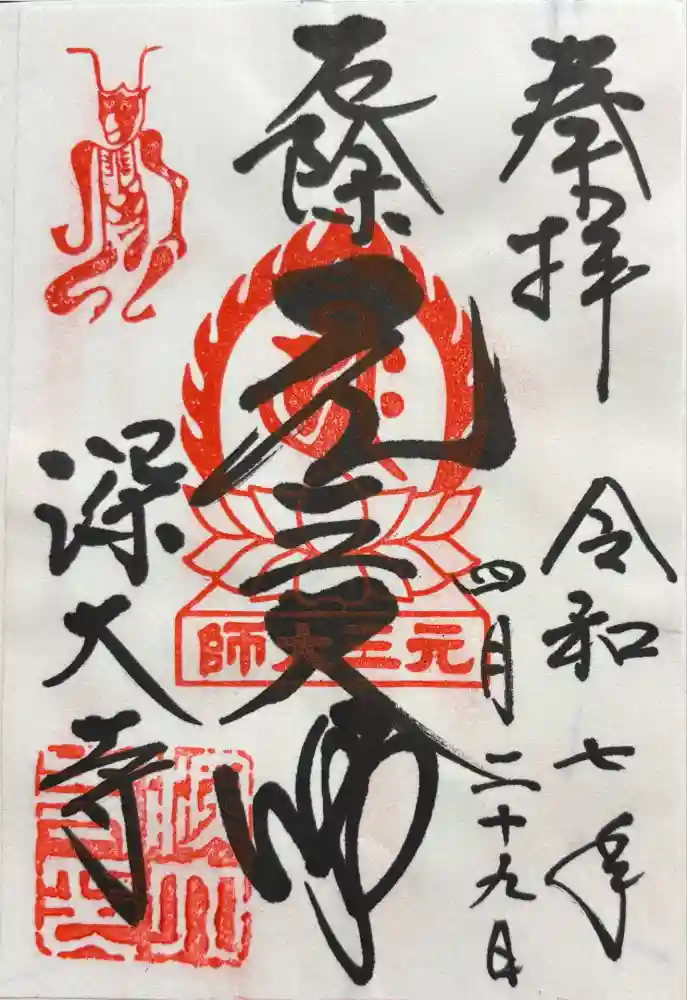 奉拝
令和七年
四月二十九日
厄除
元三大師
師大三元
深大寺